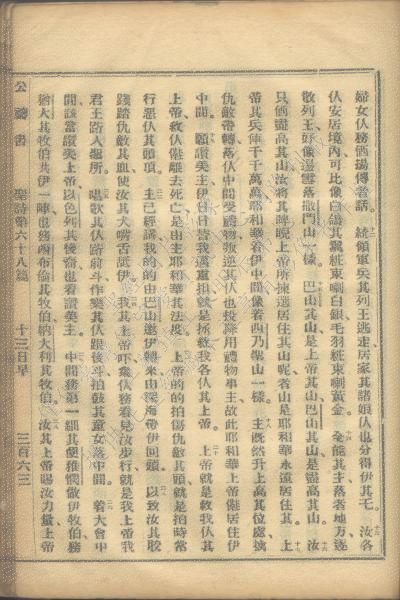 婦女仈務倘揚傳者話。統領軍兵其列王逃走居家其諸娘仈也分得伊其乇。汝各
仈安居境內可比像白鴿其翼粧柬喇白銀毛羽粧柬喇黃金。全能其主落者地方逐
散列王好像邊雪落撒門山一樣。巴山其山是上帝其山巴山其山是盡高其山。汝
只價盡高其山汝將其上帝所揀選居住其山呢者山是耶和華永遠居住其。上
帝其兵陣千千萬萬耶和華着伊中間像着西乃山一樣。主既然升上高其位處擄
仇敵帶轉落仈中間受禮物叛逆其仈也投降用禮物事主故此耶和華上帝居住伊
中間。願讚美主伊日日替我重担就是拯救我各仈其上帝。上帝就是救我仈其
上帝救仈離去死亡是由主耶和華其法度。上帝的的拍傷仇敵其頭就是拍時常
行惡仈其頭頂。主已經講我的的由巴山邀伊轉來由深海帶伊回頭。以致汝其骹
踐踏仇敵其血使汝其犬嘴舌舐伊。我其上帝吓衆仈務看見汝步行就是我上帝我
君王路入聖所。唱歌其仈路前斗作樂其仈跟後斗拍鼓其童女落中間。着大會中
間該當讚美上帝以色列其後裔也着讚美主。中間務第一細其便雅憫伊牧伯務
猶大其牧伯共伊一陣也務西布倫其牧伯納大利其牧伯。汝其上帝賜汝力量上帝
公禱書 聖詩第六十八篇 十三日早 三百六三